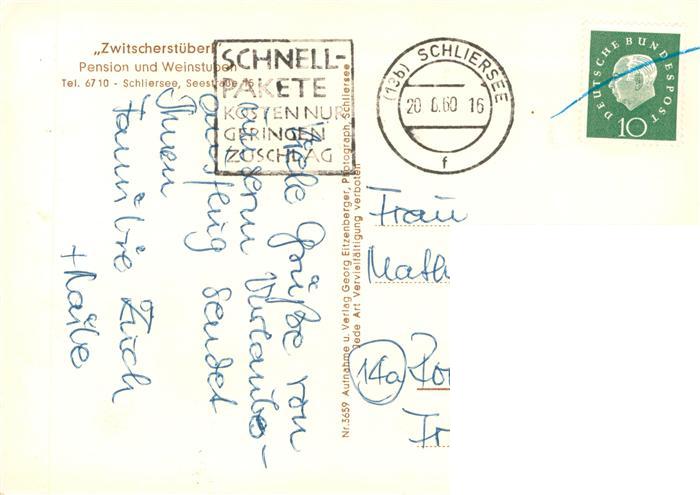 „Zwitscherstüberl"
Pension und Weinstuben
Tel. 6710 - Schliersee, Seestraße
SCHNELL-
PAKETE
KOSTEN NUR
GERINGEN
ZUSCHLAG
(13b) SCHLIERSEE
20 6.60 16
f
DEUTSCHE BUNDESPOST
10
Viele Grüße von
unserm Urlaubs-
ausflug sendet
Ihnen
Familie Zirch
+ Maike
Nr. 3659 Aufnahme u. Verlag Georg Eitzenberger, Photograph, Schliersee
Jede Art Vervielfältigung verboten
Frau
Math
14a
Fr